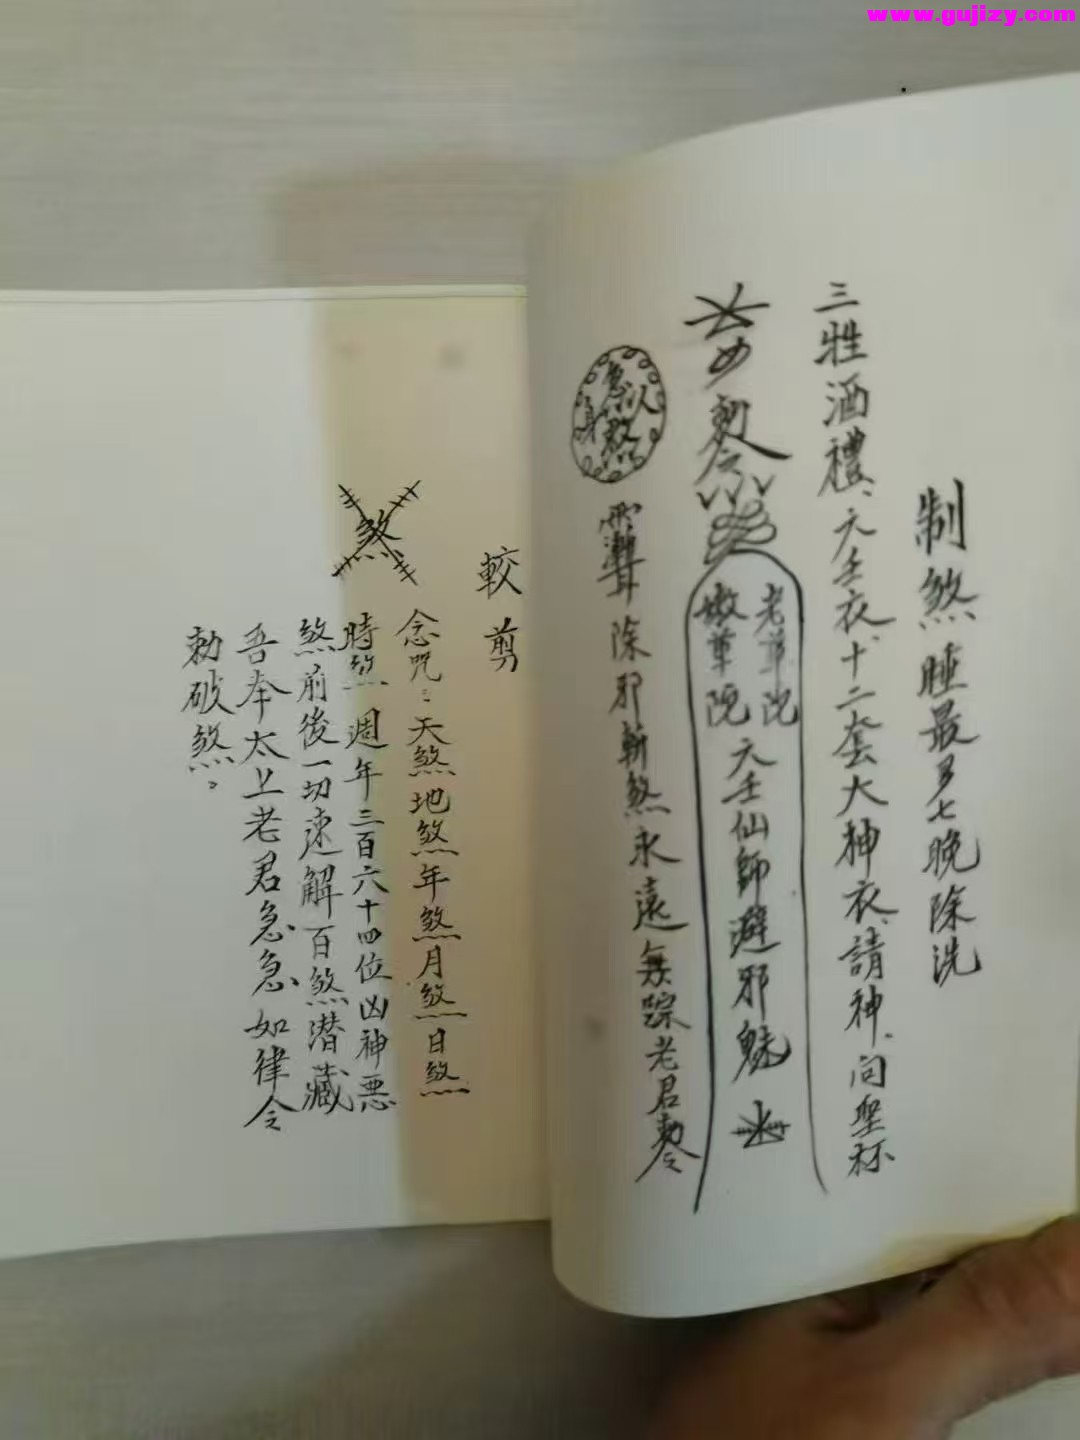 www.gujizy.com
制煞睡最多七晚除洗
三牲酒禮、六壬衣、十二套大神衣、請神、问聖杯
勅令
老草院
嫩草院
六壬仙師避邪魅
除邪斬煞永遠無踪老君勅令
較剪
煞
念咒：天煞地煞年煞月煞日煞
時煞週年三百六十四位凶神惡
煞前後一切速解百煞潜藏
吾奉太上老君急急如律令
勅破煞。